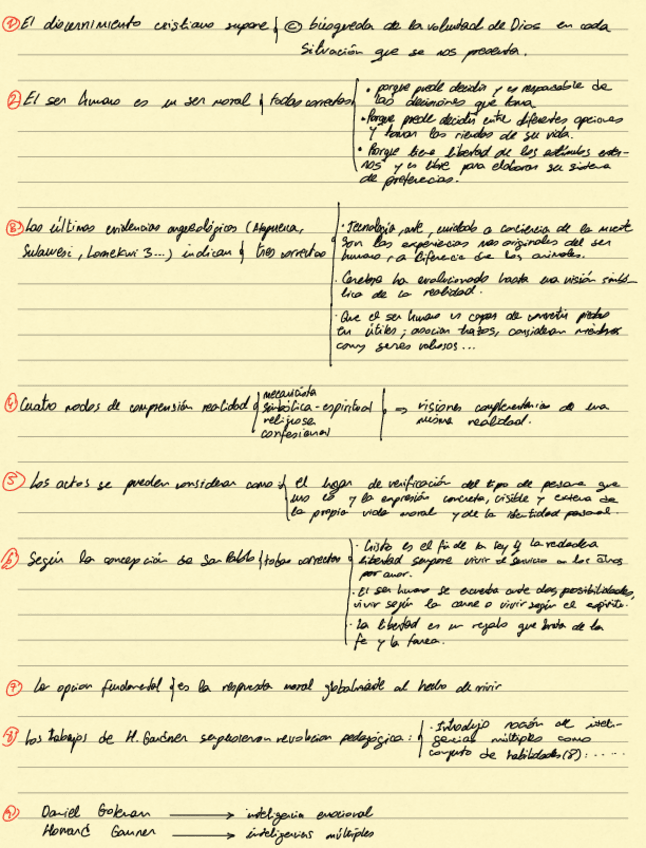 ① El discernimiento cristiano supone { © búsqueda de la voluntad de Dios en cada
situación que se nos presenta.
② El ser humano es un ser moral { todas correctas
• porque puede decidir y es responsable de
las decisiones que toma
• Porque puede decidir entre diferentes opciones
y tomar las riendas de su vida.
• Porque tiene libertad de los estímulos exter-
nos y es libre para elaborar su sistema
de preferencias.
③ Las últimas evidencias arqueológicas (Atapuerca,
Sulawesi, Lomekwi 3...) indican { tres correctas
· Tecnología, arte, cuidado a conciencia de la muerte
son las experiencias más originales del ser
humano, a diferencia de los animales.
· Cerebro ha evolucionado hasta una visión simbó-
lica de la realidad.
· Que el ser humano es capaz de convertir piedras
en útiles; asociar trazos, consideran miembros
como seres valiosos...
④ Cuatro modos de comprensión realidad
mecanicista
simbólica-espiritual
religiosa
confesional
⇒ visiones complementarias de una
misma realidad.
⑤ Los actos se pueden considerar como { el lugar de verificación del tipo de persona que
uno es y la expresión concreta, visible y externa de
la propia vida moral y de la identidad personal.
⑥ Según la concepción de San Pablo { todas correctas
· Cristo es el fin de la ley y la verdadera
libertad supone vivir al servicio de los otros
por amor.
· El ser humano se encuentra ante dos posibilidades,
vivir según la carne o vivir según el espíritu.
· La libertad es un regalo que brota de la
fe y la tarea.
⑦ La opcion fundamental { es la respuesta moral globalizante al hecho de vivir
⑧ Los trabajos de H. Gardner supusieron revolucion pedagógica: {
· Introdujo noción de inteli-
gencias múltiples como
conjunto de habilidades (8): .....
⑨ Daniel Goleman → inteligencia emocional
Howard Garner → inteligencias múltiples